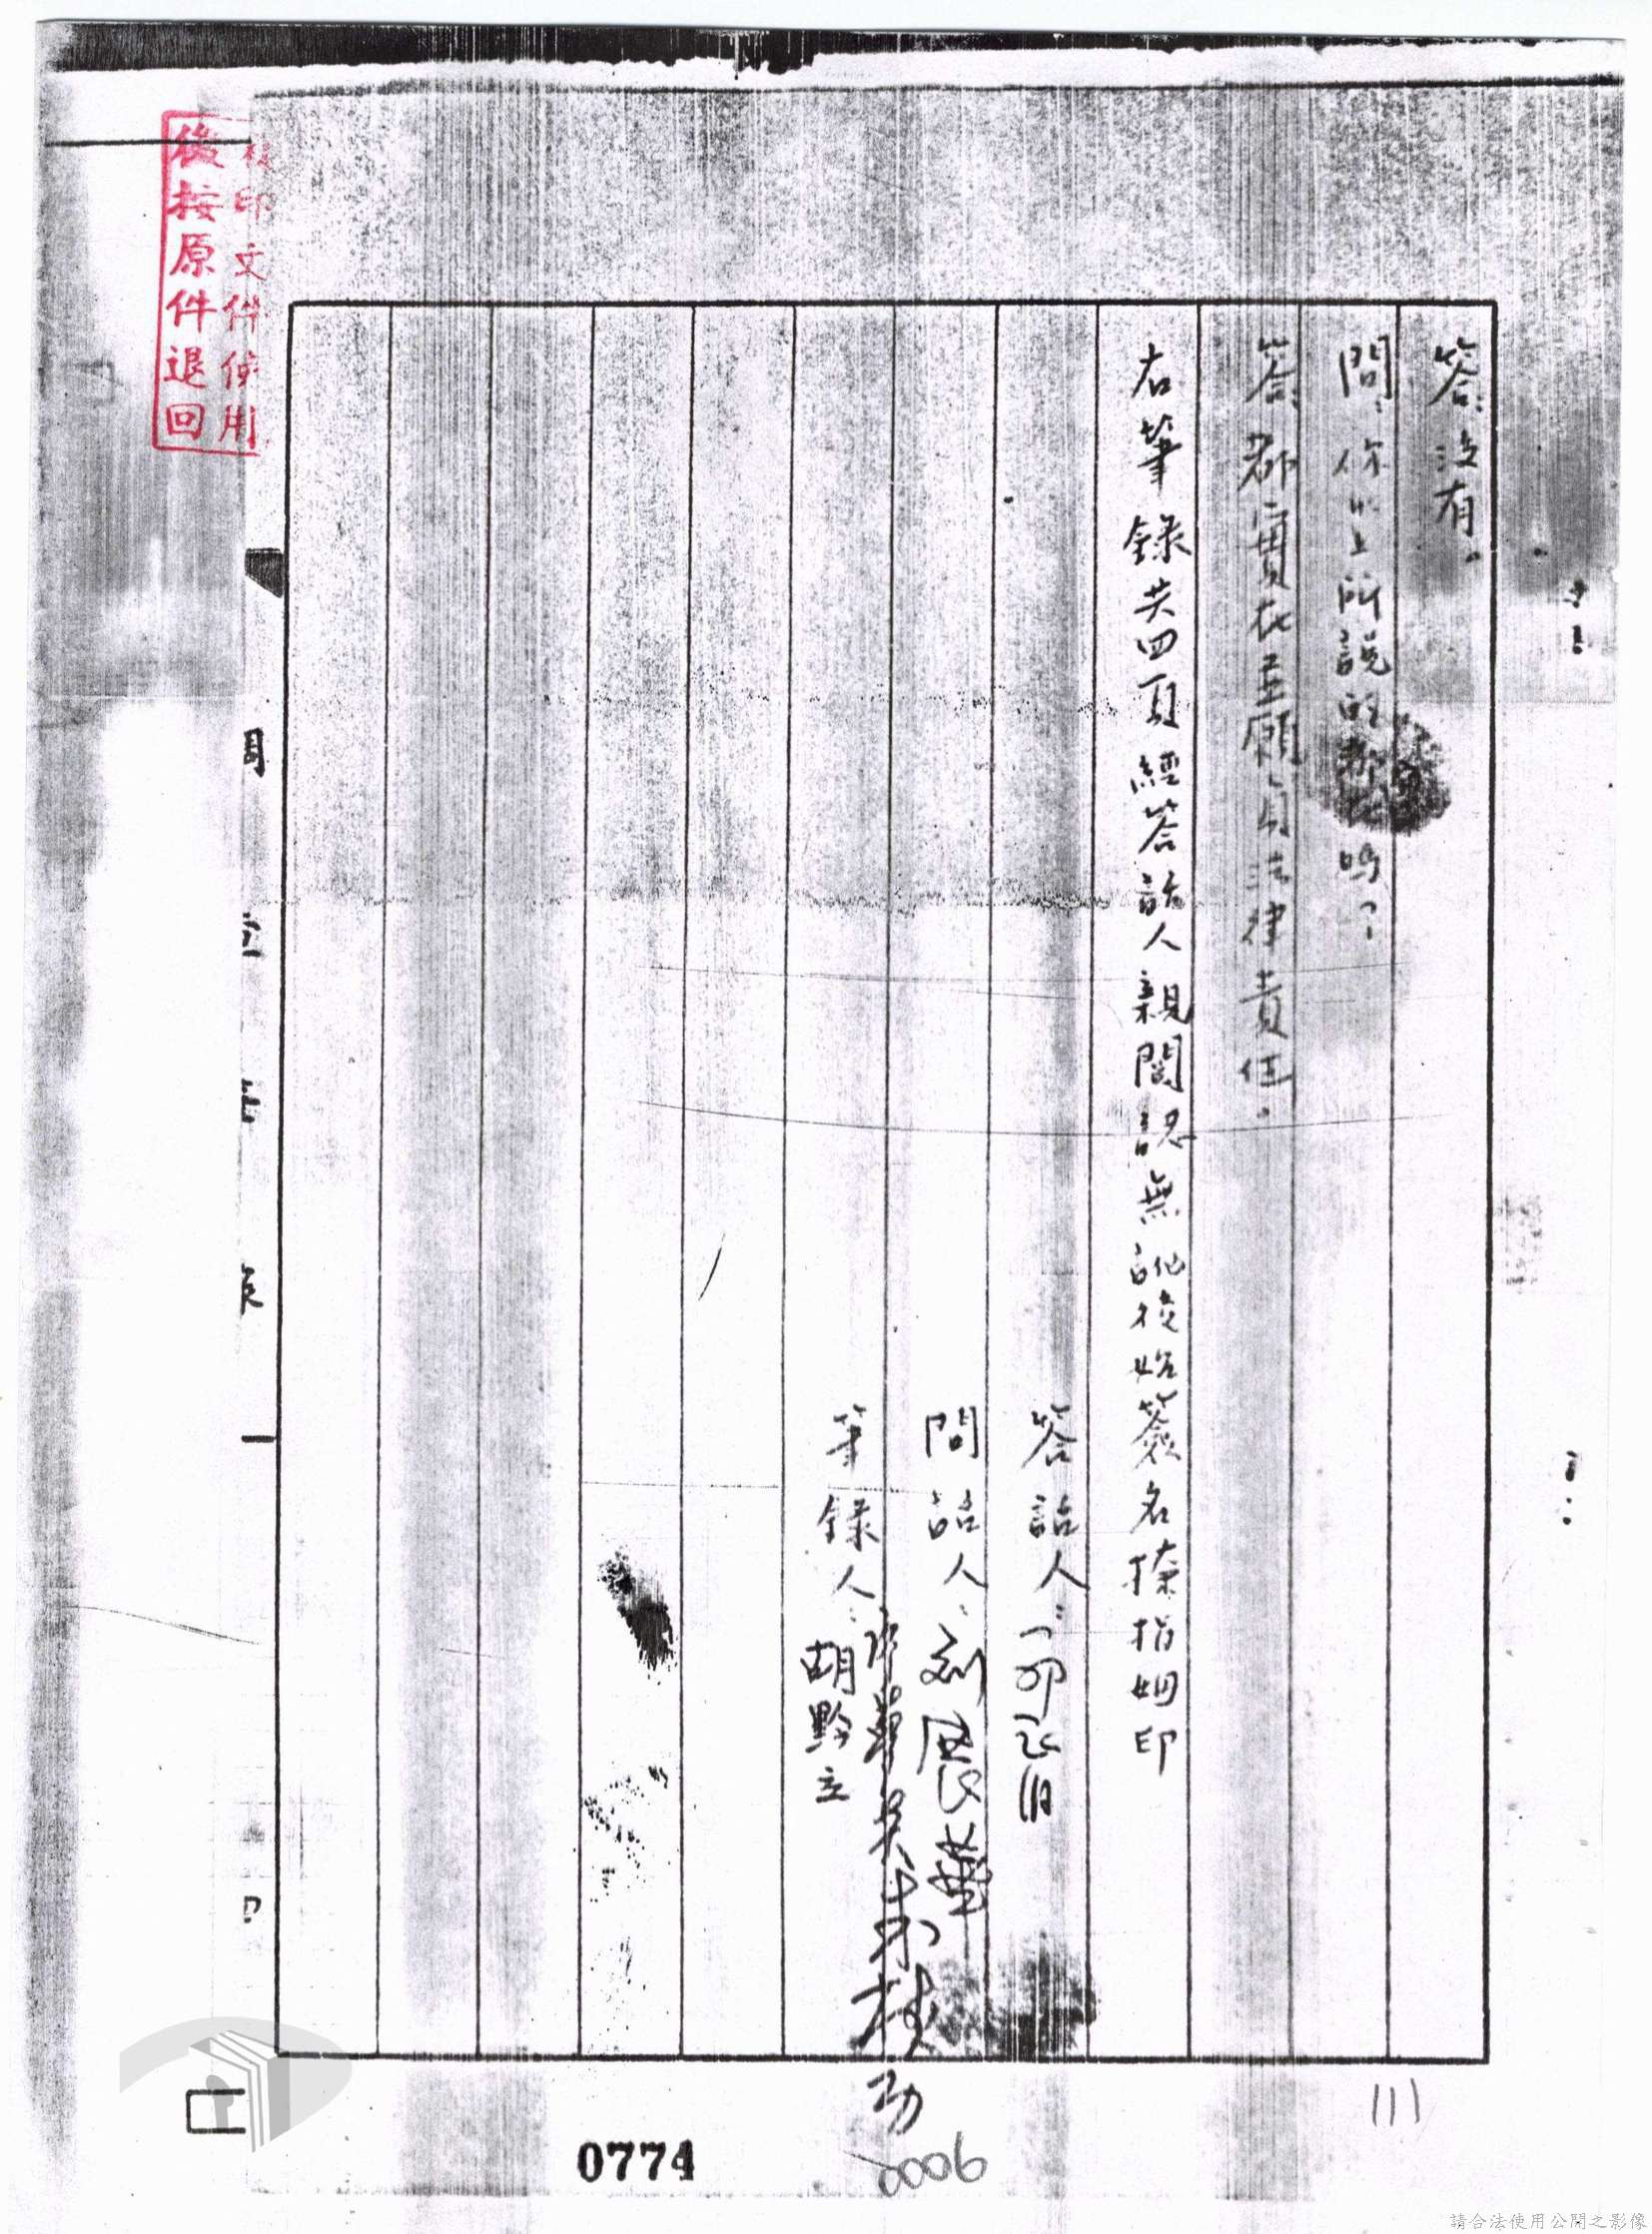 答：沒有。
問：你以上所說的都實在嗎？
答：都實在並願負法律責任。
右筆錄共四頁經答話人親閱認無訛後始簽名捺指姆印
答話人：
問話人：劉展華
筆錄人：胡黔立
複印文件使用
後按原件退回
0774
0006
111
請合法使用公開之影像